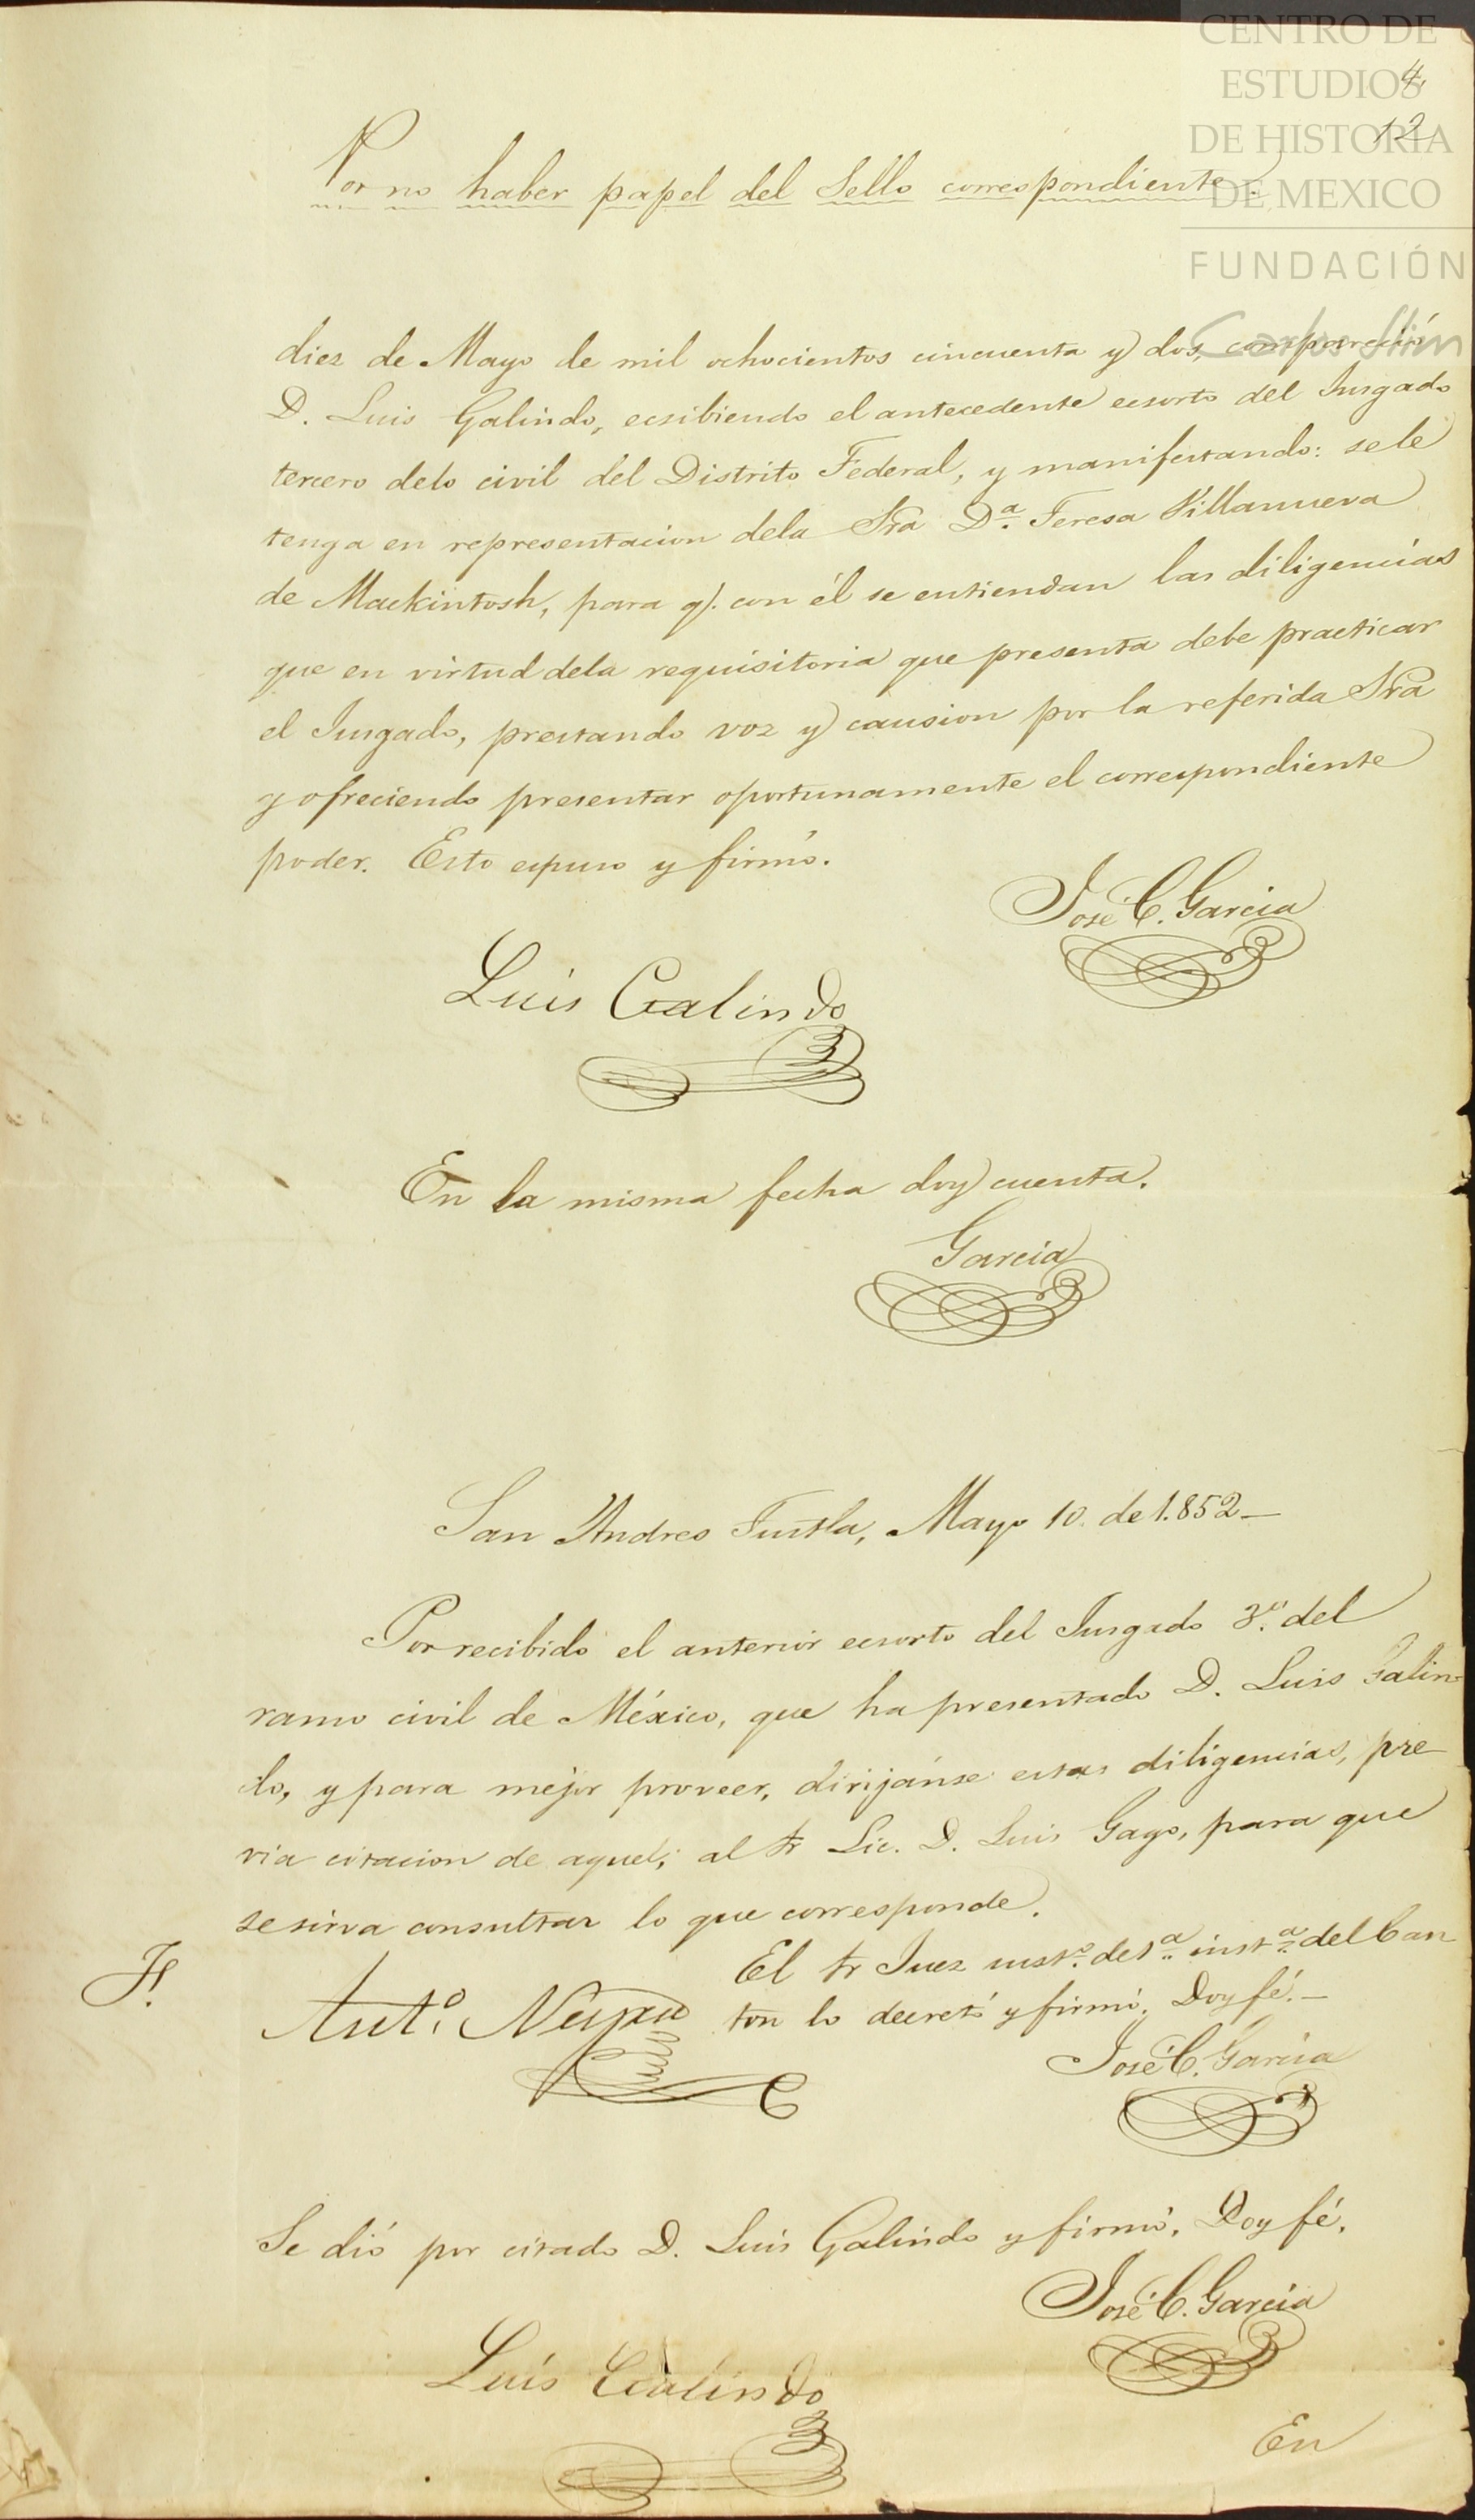 CENTRO DE
ESTUDIOS
DE HISTORIA
DE MEXICO
FUNDACIÓN
Carlos Slim
4,
12
Por no haber papel del Sello correspondiente.
diez de Mayo de mil ochocientos cincuenta y dos, compareció
D. Luis Galindo, ecsibiendo el antecedente ecsorto del Jusgado
tercero delo civil del Distrito Federal, y manifestando: se le
tenga en representacion dela Sra Dª. Teresa Villanueva
de Mackintosh, para q. con él se entiendan las diligencias
que en virtud dela requisitoria que presenta debe practicar
el Jusgado, prestando voz y causion por la referida Sra
y ofreciendo presentar oportunamente el correspondiente
poder. Esto espuso y firmó.
José C. Garcia
Luis Galindo
En la misma fecha doy cuenta.
Garcia
San Andres Tustla, Mayo 10. de 1.852—
Por recibido el anterior ecsorto del Jusgado 3º. del
ramo civil de México, que ha presentado D. Luis Galin-
do, y para mejor proveer, dirijánse estas diligencias, pre-
via citacion de aquel, al Sr Lic. D. Luis Gago, para que
se sirva consultar lo que corresponde.
El Sr Juez sust.º de 1.ª inst.ª del Can
Ant.º
ton lo decretó y firmó. Doy fé.—
José C. Garcia
Se dió por citado D. Luis Galindo y firmó, Doy fé.
José C. Garcia
Luis Galindo
En